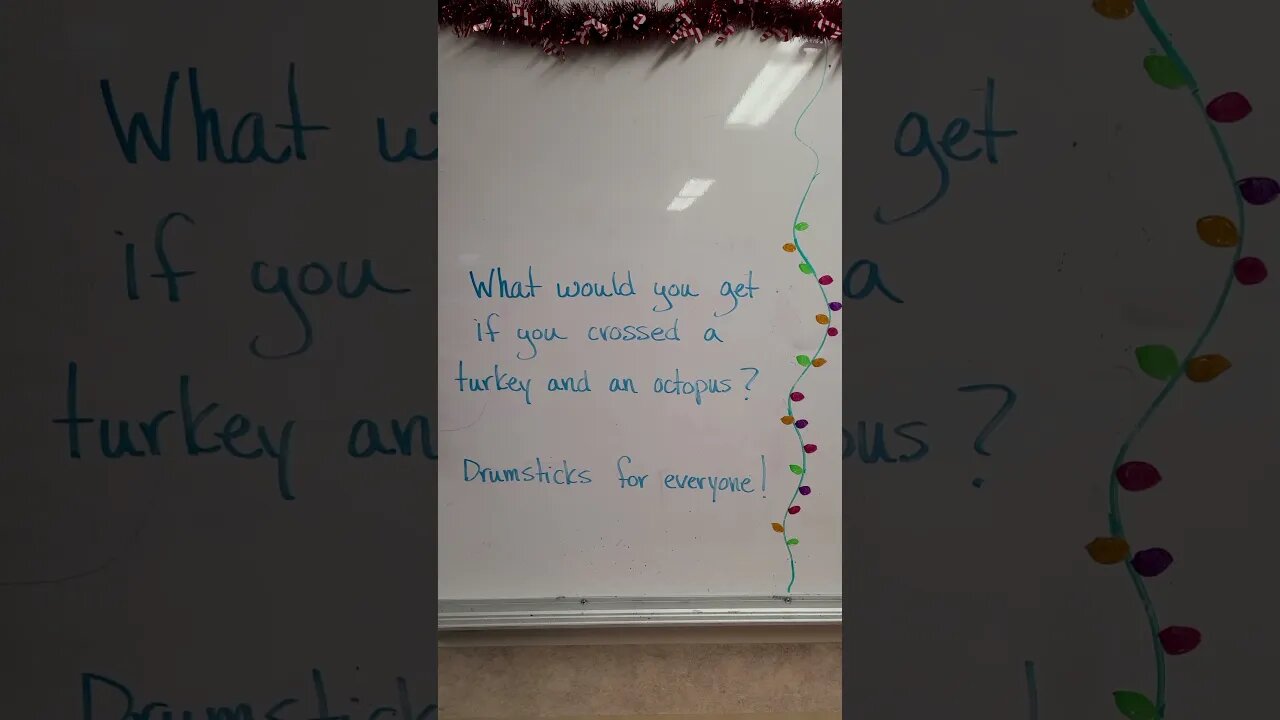 What would you get
if you crossed a
turkey and an octopus?
Drumsticks for everyone!